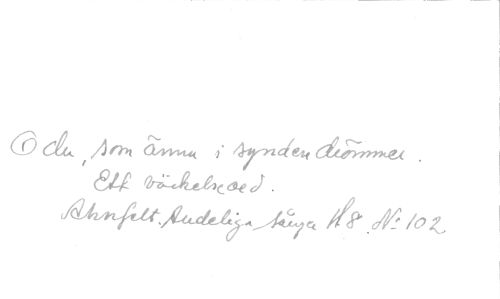 O du, som ännu i synden drömmer.
Ett väckelseord.
Ahnfelt. Andeliga sånger H 8. No 102